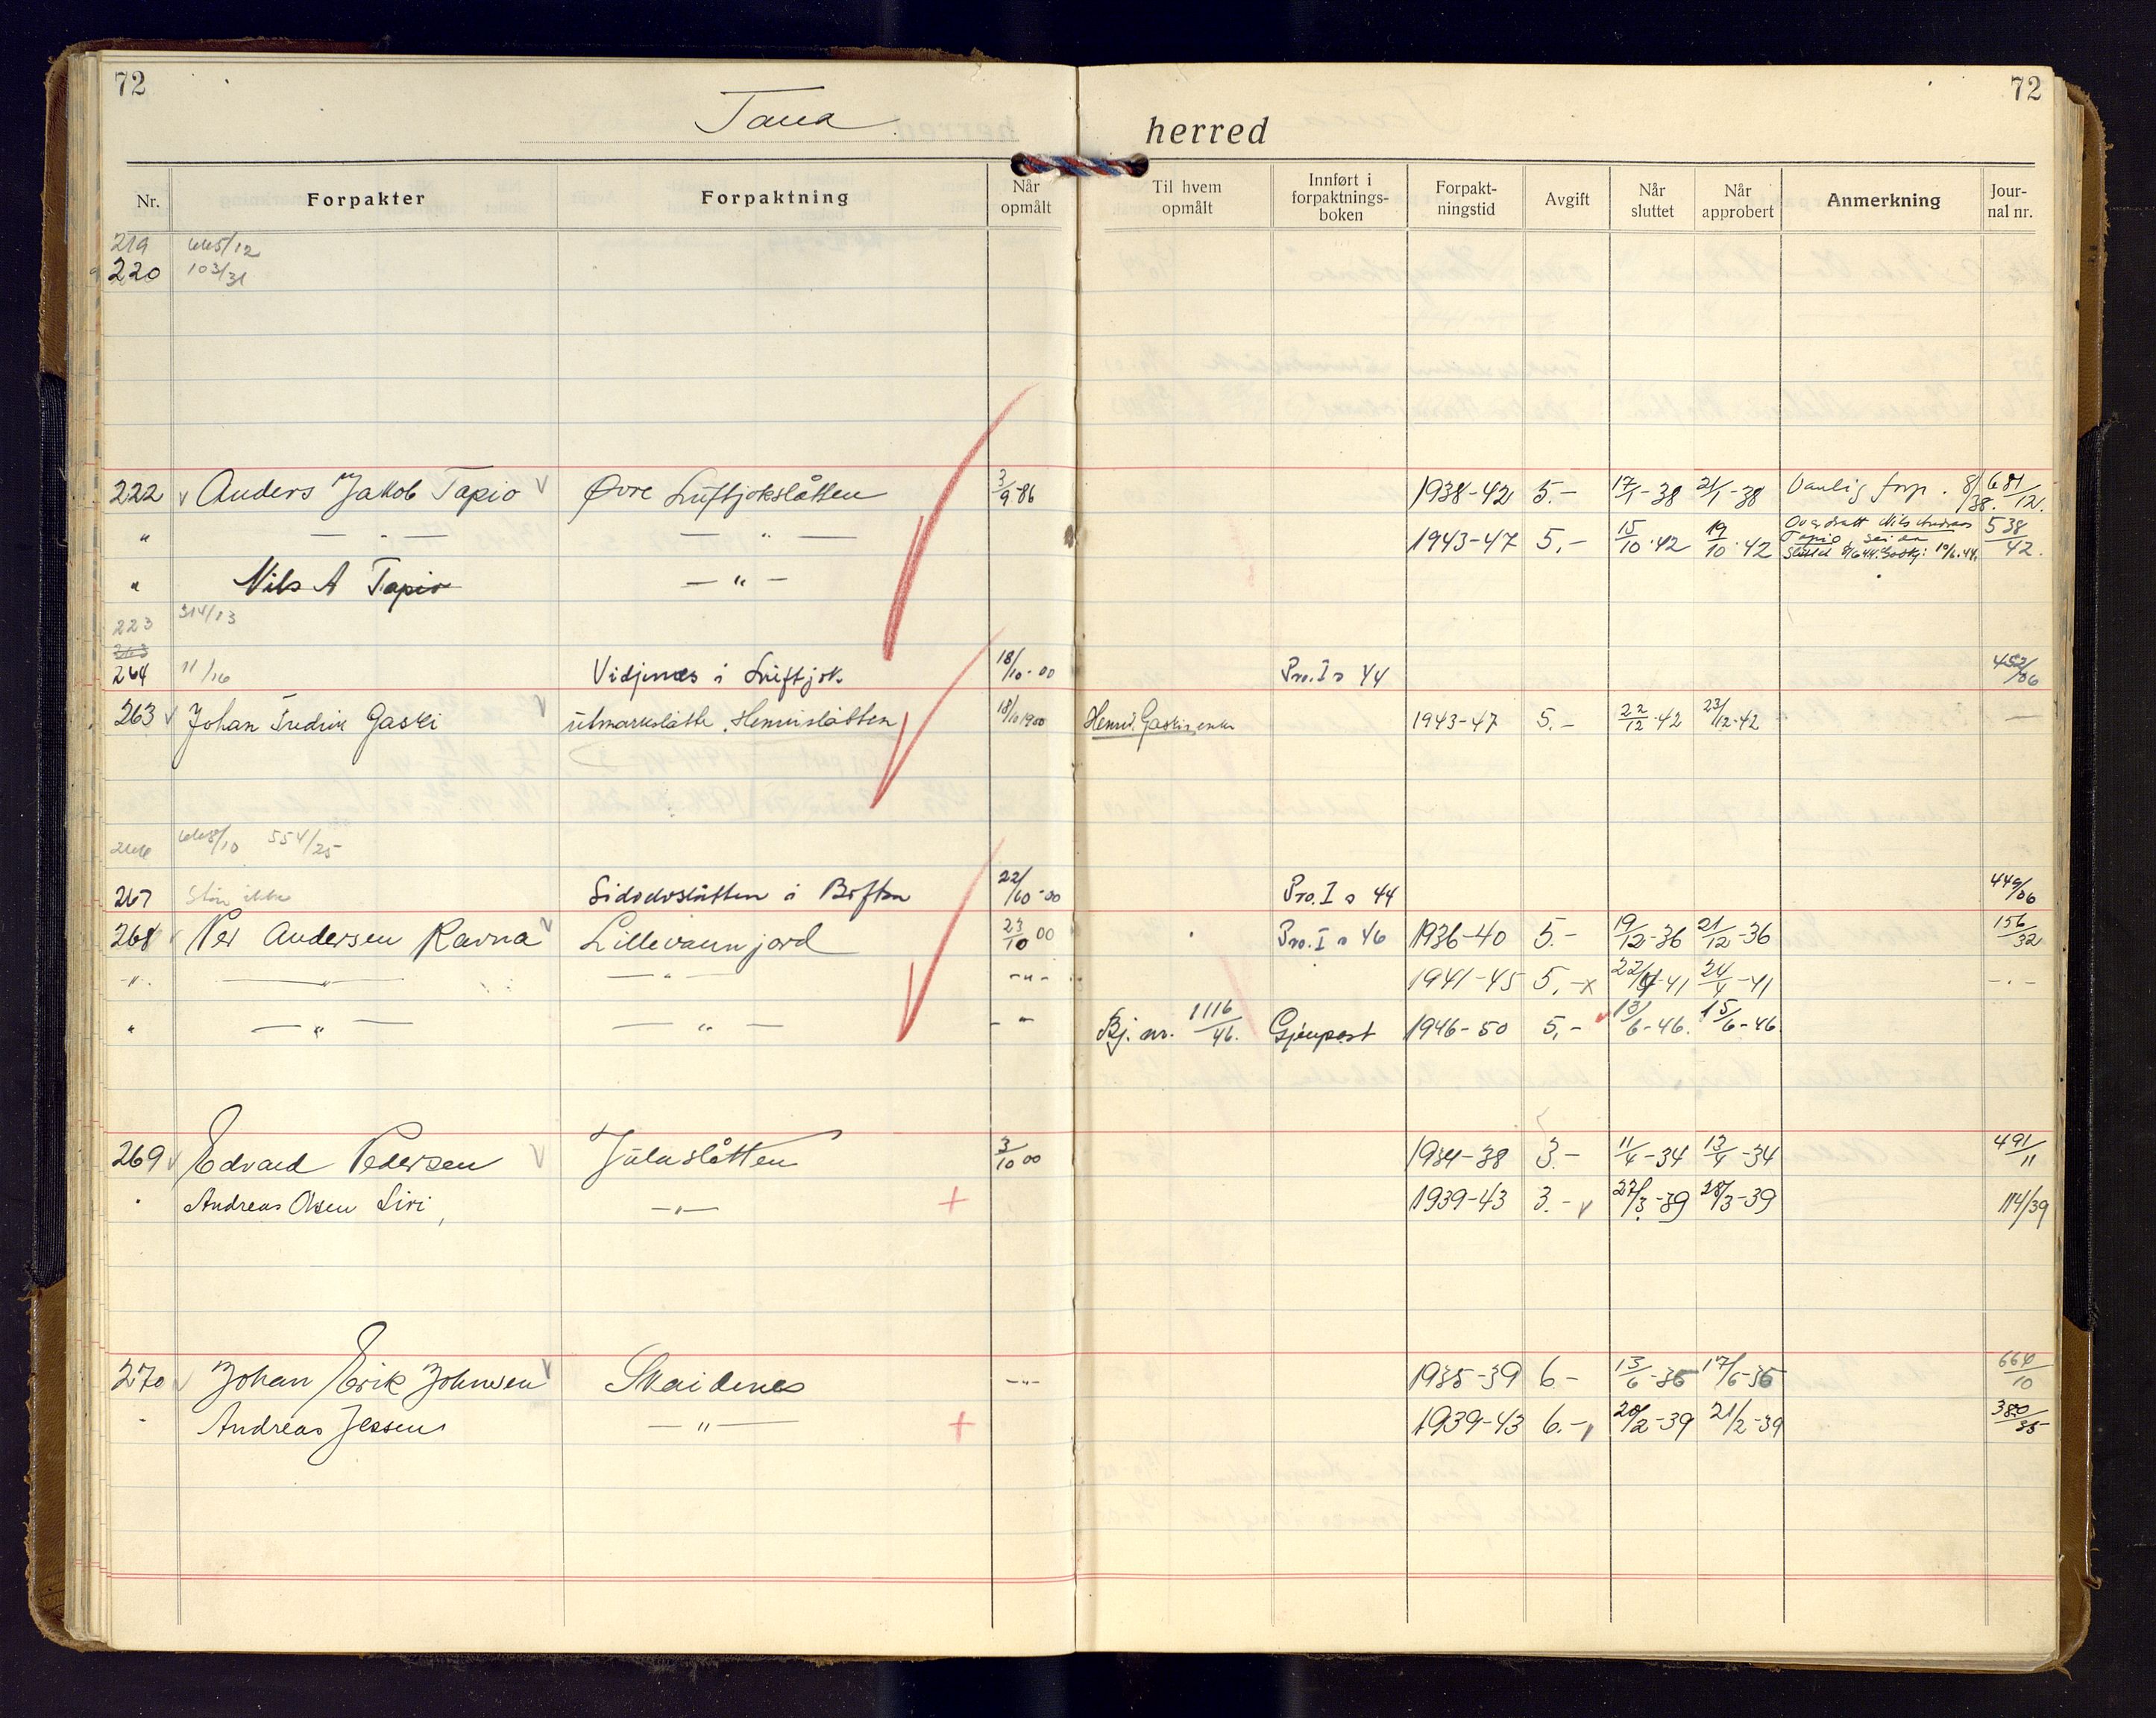 72 72
Tana herred
Nr. Forpakter Forpaktning Når opmålt Til hvem opmålt Innført i forpaktnings-boken Forpakt-ningstid Avgift Når sluttet Når approbert Anmerkning Jour-nal nr.
219 665/12
220 103/31
222 v Anders Jakob Tapio v Øvre Luftjokslåtten 3/9 86 1938-42 5.- 17/1-38 21/1-38 Vanlig forp. 8/38. 681/12.
" — " — — " — 1943-47 5,- 15/10-42 19/10-42 Overdratt Nils Andreas Tapio, sluttet 8/6 44. Godkj. 10/6.44. 538/42.
" Nils A Tapio — " —
223 314/13
263
264 11/16 Vidjenes i Luftjok 18/10-00 Pro. I s 44 452/06
263 v Johan Fredrik Gaski v utmarkslåtte "Henrikslåtten 18/10 1900 Henrik Gaskis enke 1943-47 5.- 22/12-42 23/12-42 —
266 668/10 554/25
267 Står ikke Sidodoslåtten i Boftsa 22/10-00 Pro. I s 44 449/06
268 v Per Andersen Ravna v Lillevannjord 23/10 00 Pro. I s 46 1936-40 5.- 19/12-36 21/12-36 156/32
-"- — " — — " — -"- 1941-45 5,-x 22/4-41 24/4-41 -"-
" — " — — " — -"- Bj. nr. 1116/46. Gjenpart 1946-50 5,- 13/6-46. 15/6-46
269 v Edvard Pedersen v Julaslåtten 3/10 00 1934-38 3.- 11/4-34 13/4-34 491/11
" Andreas Olsen Siri, — " — + 1939-43 3.- v 27/3-39 28/3-39 114/39
270 v Johan Erik Johnsen v Skaidenes -"- 1935-39 6.- 13/6-35 17/6-35 664/10
" Andreas Jessen — " — + 1939-43 6.- 20/2-39 21/2-39 380/35